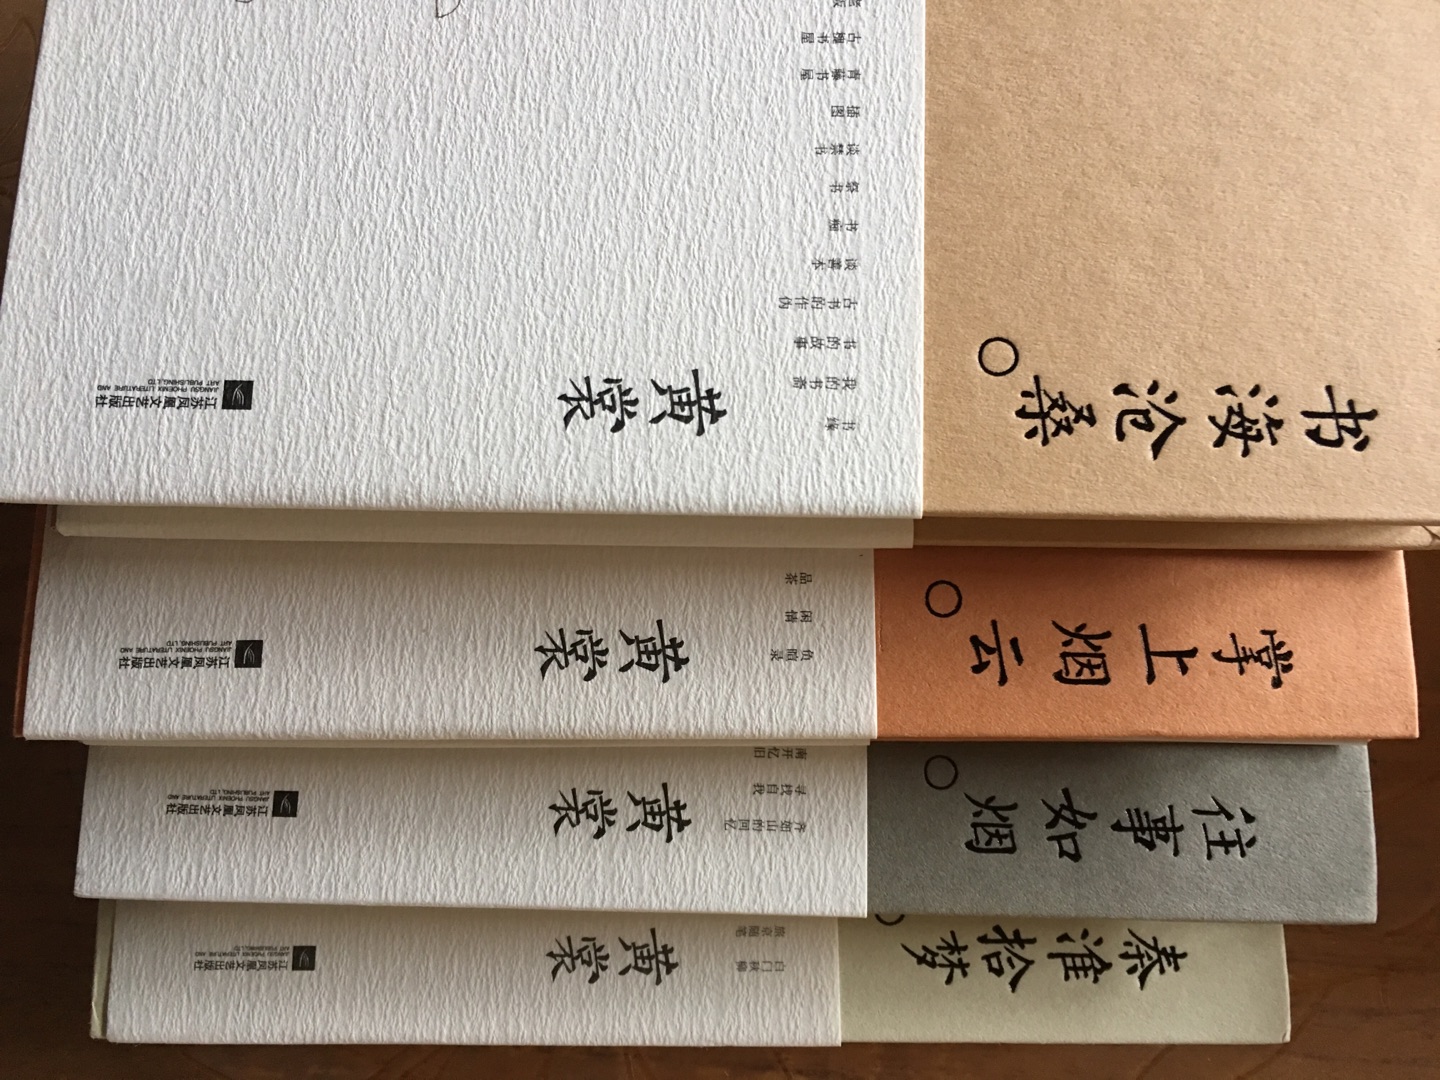 书海沧桑
书缘
我的书斋
书的故事
古书的作伪
谈善本
书痴
祭书
谈禁书
插图
青藤书屋
古槐书屋
黄裳
江苏凤凰文艺出版社
JIANGSU PHOENIX LITERATURE AND
ART PUBLISHING, LTD
掌上烟云
负暄录
闲情
品茶
黄裳
江苏凤凰文艺出版社
JIANGSU PHOENIX LITERATURE AND
ART PUBLISHING, LTD
往事如烟
齐如山的回忆
寻找自我
南开忆旧
黄裳
江苏凤凰文艺出版社
JIANGSU PHOENIX LITERATURE AND
ART PUBLISHING, LTD
秦淮拾梦
白门秋柳
旅京随笔
黄裳
江苏凤凰文艺出版社
JIANGSU PHOENIX LITERATURE AND
ART PUBLISHING, LTD